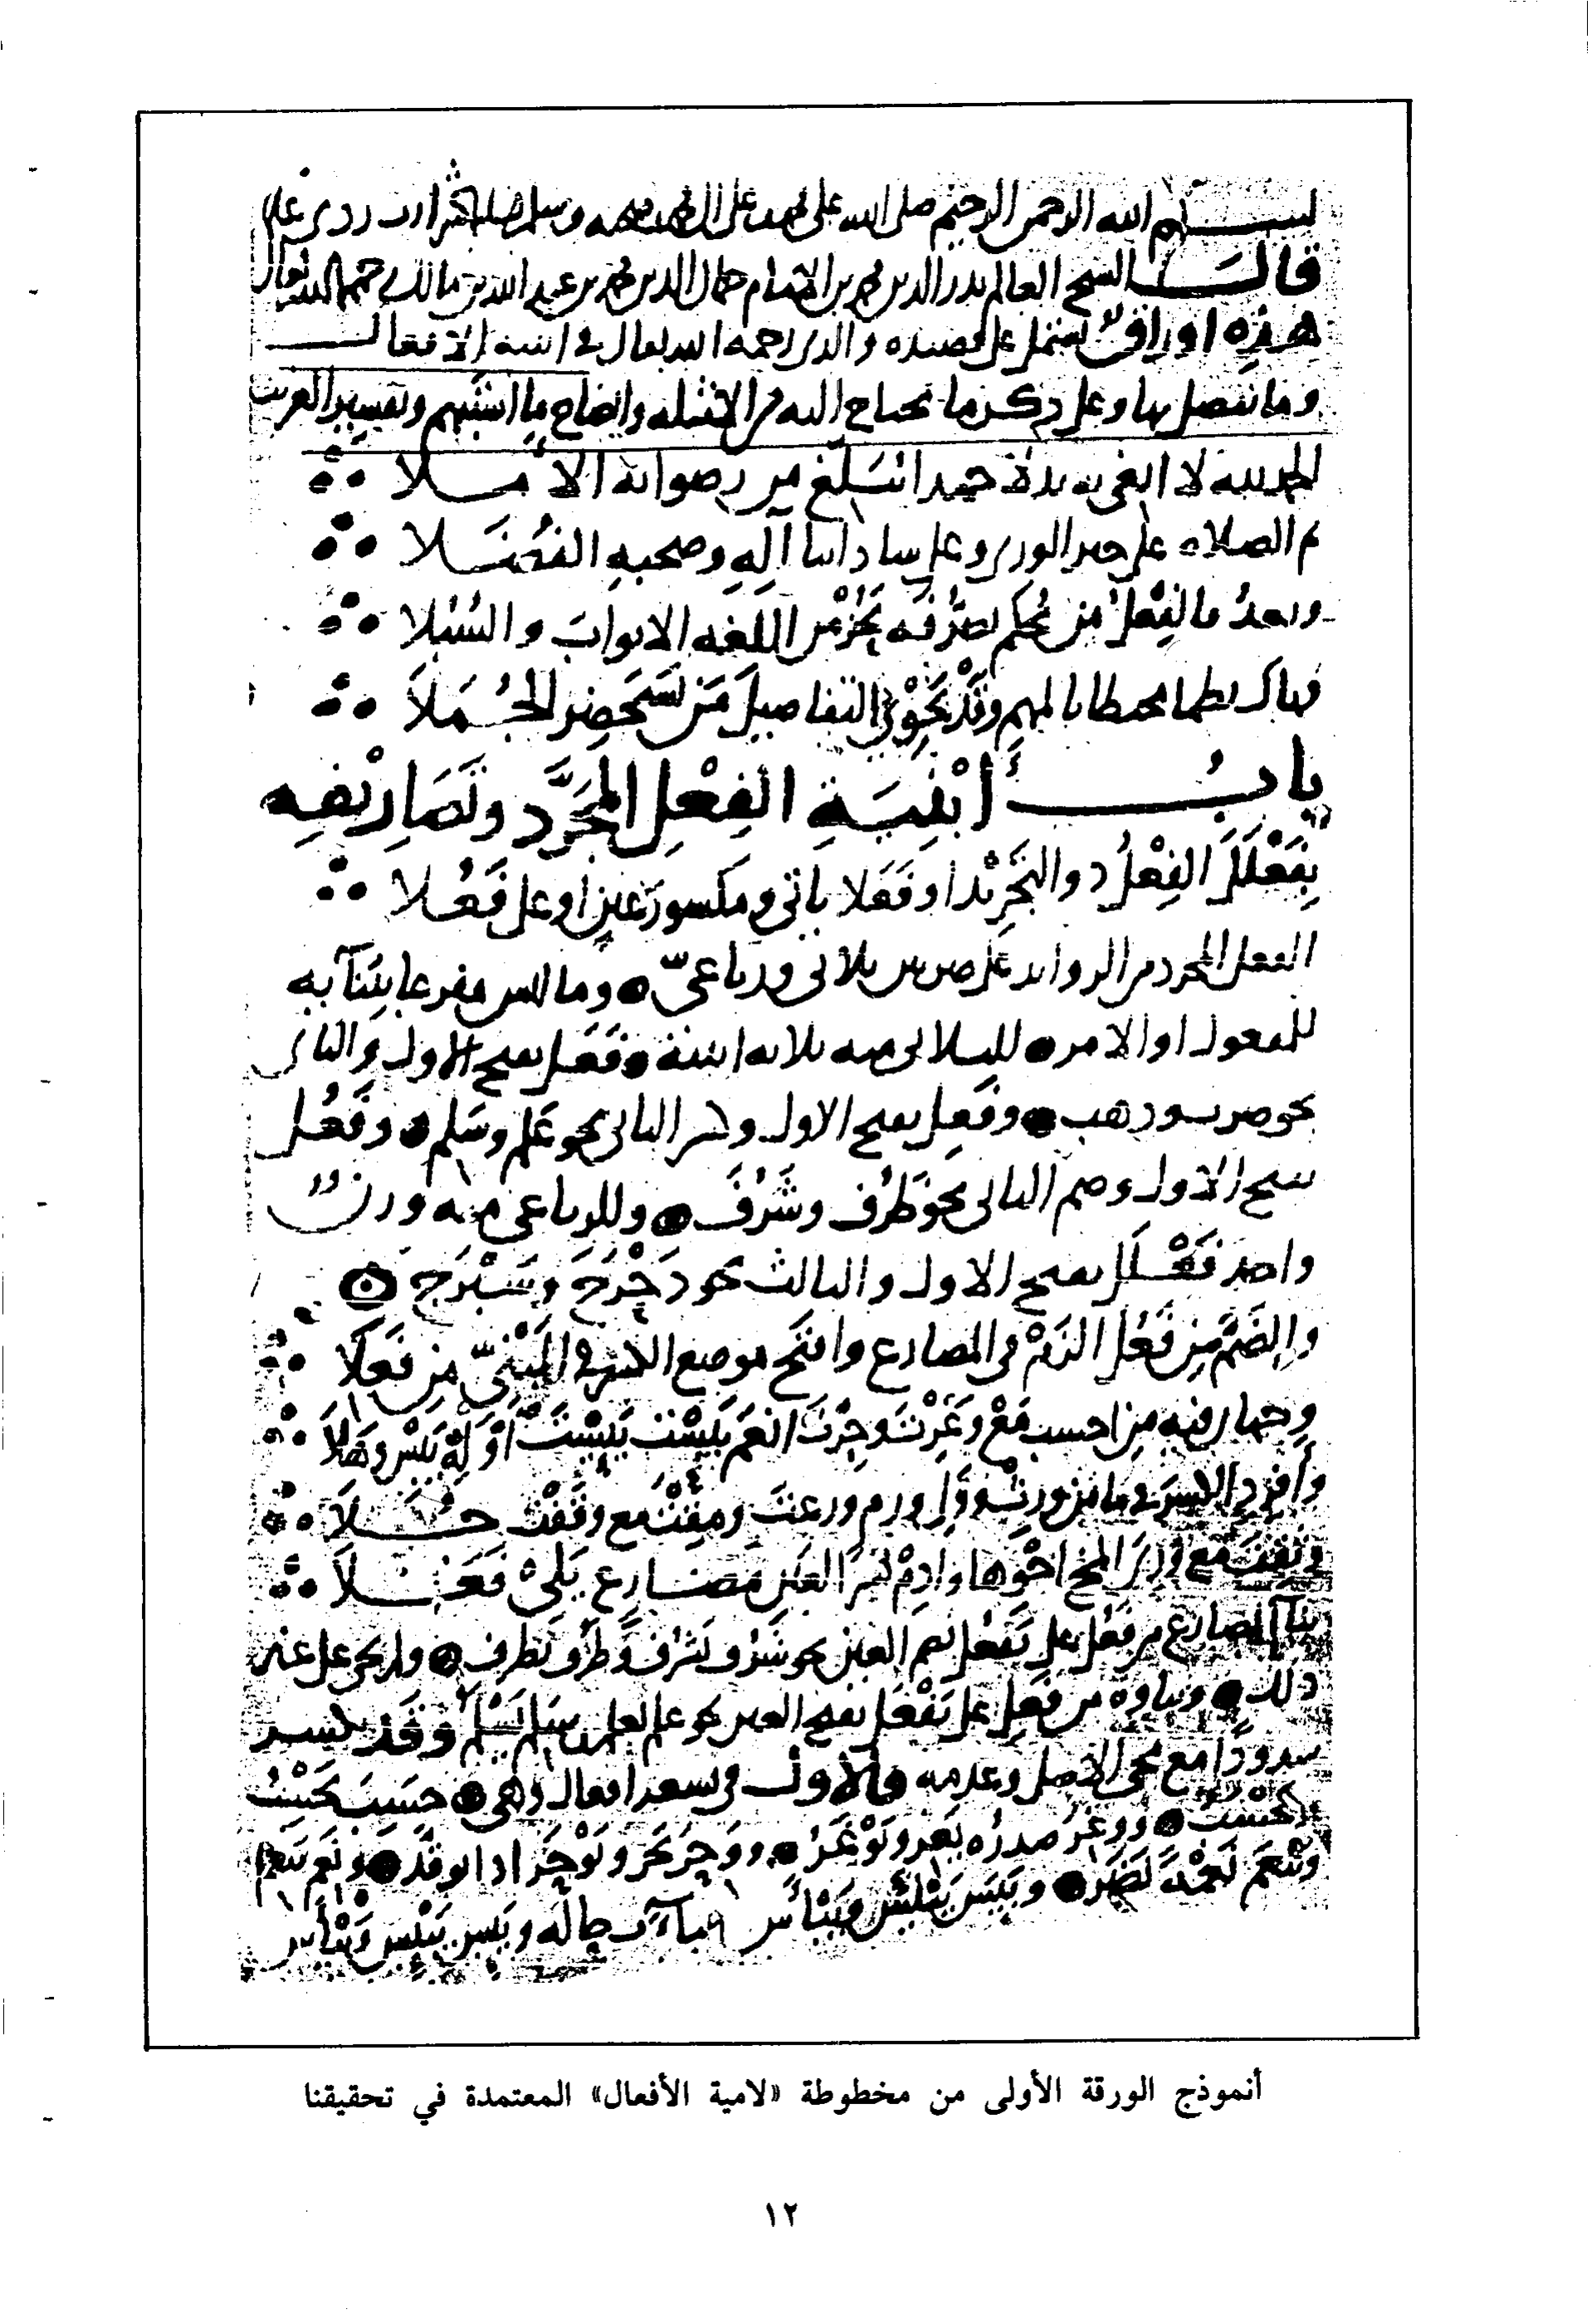 بسم الله الرحمن الرحيم صلى الله على محمد وعلى آل محمد وصحبه وسلم رب زدني علما
قال الشيخ العالم بدر الدين محمد بن الإمام جمال الدين محمد بن عبد الله بن مالك رحمهما الله تعالى
هذه اوراق تشتمل على قصيدة والدي رحمه الله تعالى في ابنية الافعال
وما يتصل بها وعلى ذكر ما يحتاج اليه من الامثلة وايضاح ما استبهم وتفسير الغريب
الحمد لله لا ابغي به بدلا حمدا يبلغ من رضوانه الاملا
ثم الصلاة على خير الورى وعلى ساداتنا آلِهِ وصحبهِ الفُضَلا
وبعدُ فالفِعْلُ مَن يُحكِم تصرُّفَه يَحُزْ من اللغه الابوابَ والسُبُلا
فهاك نظما محيطا بالمهم وقَدْ يَحْوِي التفاصيلَ مَن يَسْتَحضِر الجُمَلاَ
بابُ أَبْنِيَةِ الفِعْلِ المجَرَّدِ وتَصَارِيْفِه
بِفَعْلَلَ الفِعْلُ ذو التجْرِيْد او فَعَلا ياتي ومكسورَ عَينٍ او على فَعُلا
الفعل المجرد من الزوايد على ضربين ثلاثي ورباعيّ وما ليس مفرعا ببنآيه
للمفعول او الامر للثلاثي منه ثلاثه ابنية فَعَل بفتح الاول والثاني
نحو ضرب وذهب وفَعِل بفتح الاول وكسر الثاني نحو عَلِم وسَلِم وفَعُل
بفتح الاول وضم الثاني نحو ظَرُف وشَرُفَ وللرباعي منه وزنٌ
واحد فَعْلَل بفتح الاول والثالث نحو دَحْرَجَ وسَبْرَجَ
والضَمَّ مِن فَعُلَ الزَمْ في المضارع وافتَح موضع الكسر في المَبْنيّ مِن فَعِلا
وجهان فيه مِن احسب مَعْ وَغِرْتَ وَحِرْتَ انعَم بَئِسْتَ يَئِسْتَ أَوْلَهْ يَبِسْ وَهِلاَ
وأفرِدِ الكسرَ في ما من وَرِثْ ووَلِي وَرِم وَرِعتَ ومِقْتَ مع وَفِقْتَ حُلاَ
وَثِقتَ مَع وَرِيَ المخ احْوِها وادِمْ كسرَ العَين مضارع يَلِيْ فَعَلاَ
بنآ المضارع من فَعُل على يَفْعُل بضم العين نحو شَرُف يَشْرُف وظَرُف يَظرُف ولم يجي على غير
ذلك وبناوه من فَعِل على يَفْعَل بفتح العين نحو علم يعلم سَلِم يَسْلَم وقَد يكسر
شذوذا مع مجي الاصل وعدمه فالاول في تسعه افعال وهي حَسِبَ يَحْسِبُ
ويَحْسَبُ ووغِرَ صدرُه يَغِر ويَوْغَرُ ووَحِر يَحِر ويَوْحَر اذا توقد ونَعِم يَنعِم
ويَنْعَم نَعْمَةً نَضِر وبَئِسَ يَبْئِسُ ويَبْأَس سآت حاله ويَئِسَ يَيْئِس ويَيْأَس
أنموذج الورقة الأولى من مخطوطة «لامية الأفعال» المعتمدة في تحقيقنا
١٢